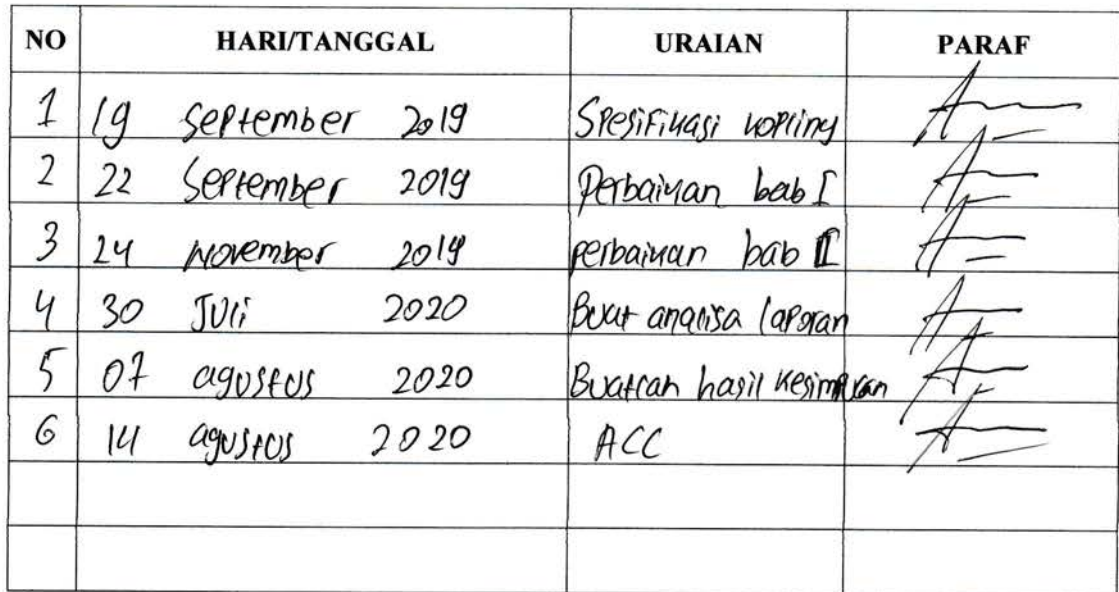 NO HARI/TANGGAL URAIAN PARAF
1 19 September 2019 Spesifikasi kopling
2 22 September 2019 Perbaikan bab I
3 24 November 2019 perbaikan bab II
4 30 Juli 2020 Buat analisa laporan
5 07 agustus 2020 Buatkan hasil kesimpulan
6 14 agustus 2020 ACC